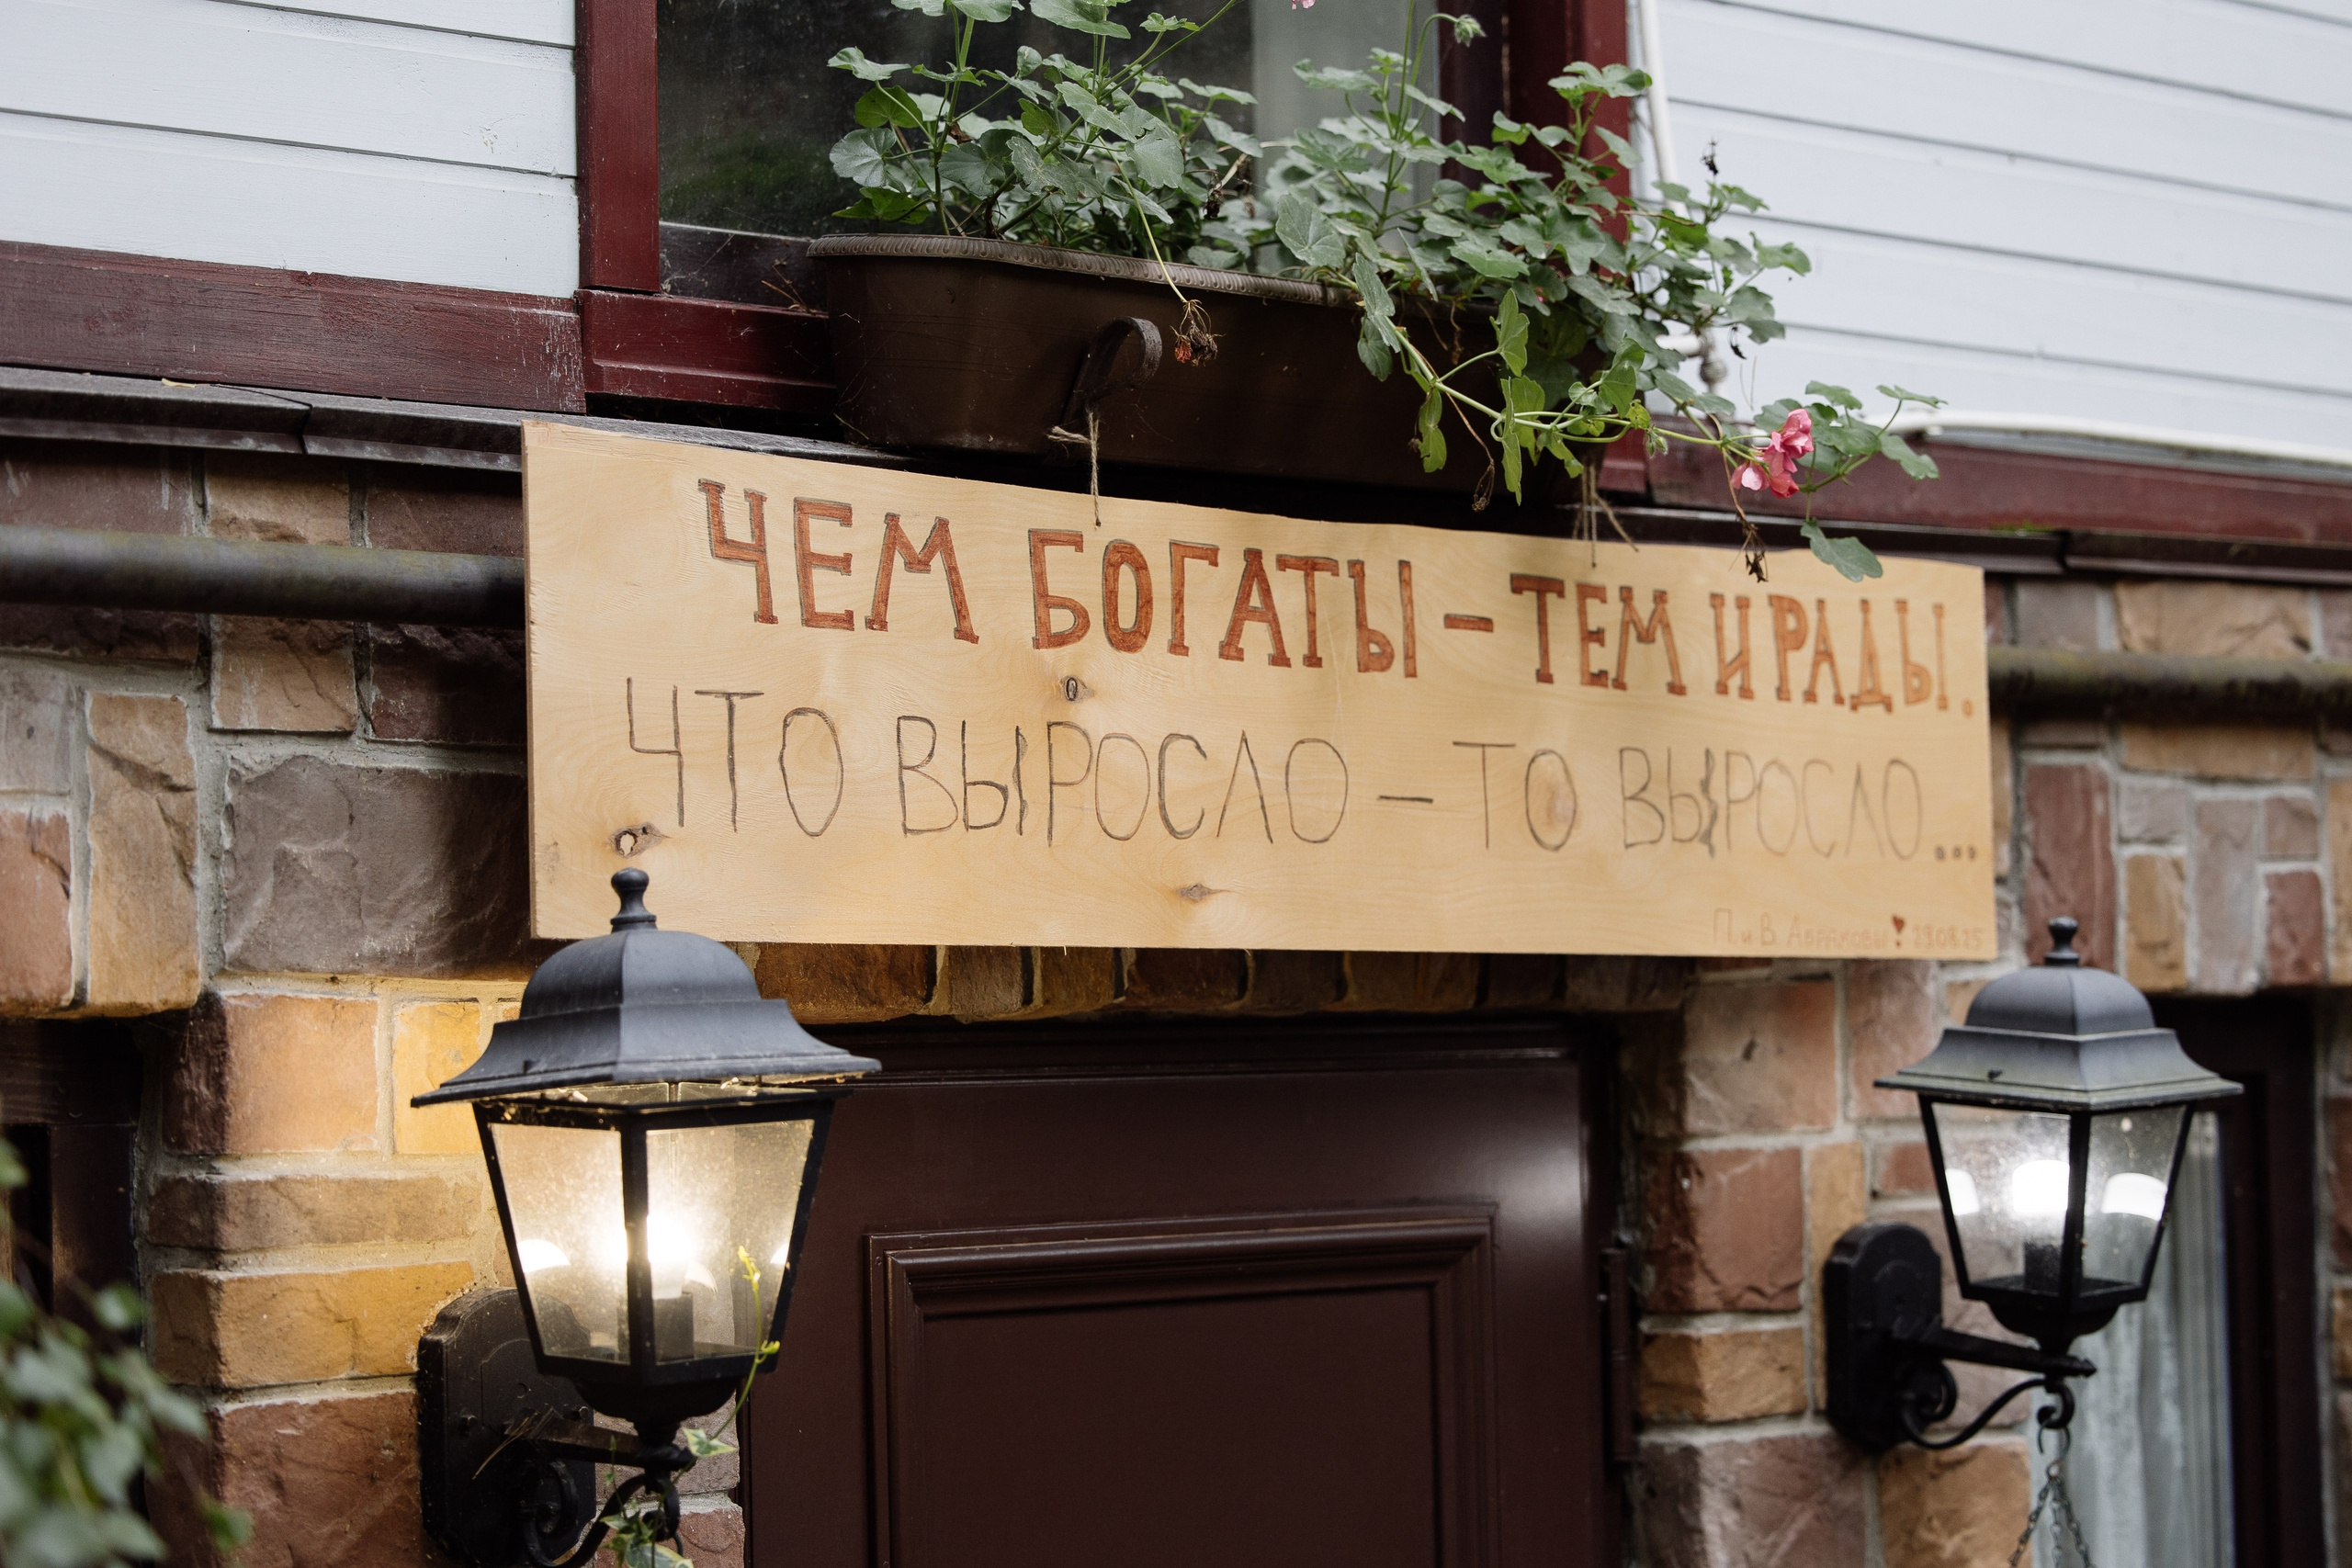 ЧЕМ БОГАТЫ – ТЕМ И РАДЫ.
ЧТО ВЫРОСЛО – ТО ВЫРОСЛО...
П. и В. 28.08.25